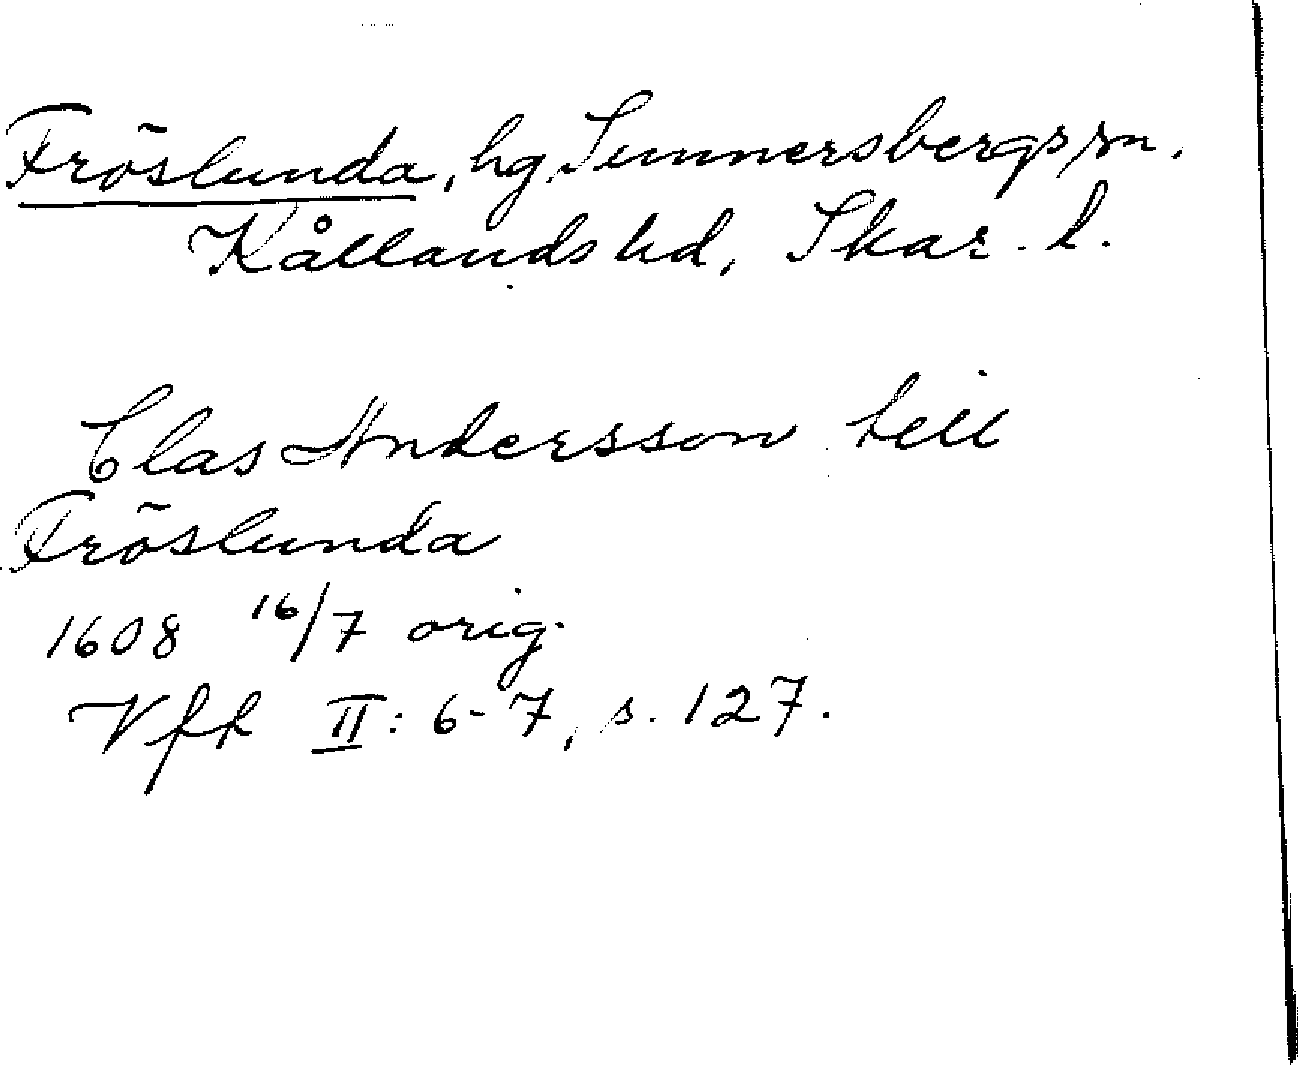 Fröslunda, hg, Sunnersbergs sn.
Kållands hd, Skar. l.
Clas Andersson till
Fröslunda
1608 16/7 orig.
Vfh II: 6-7, s. 127.